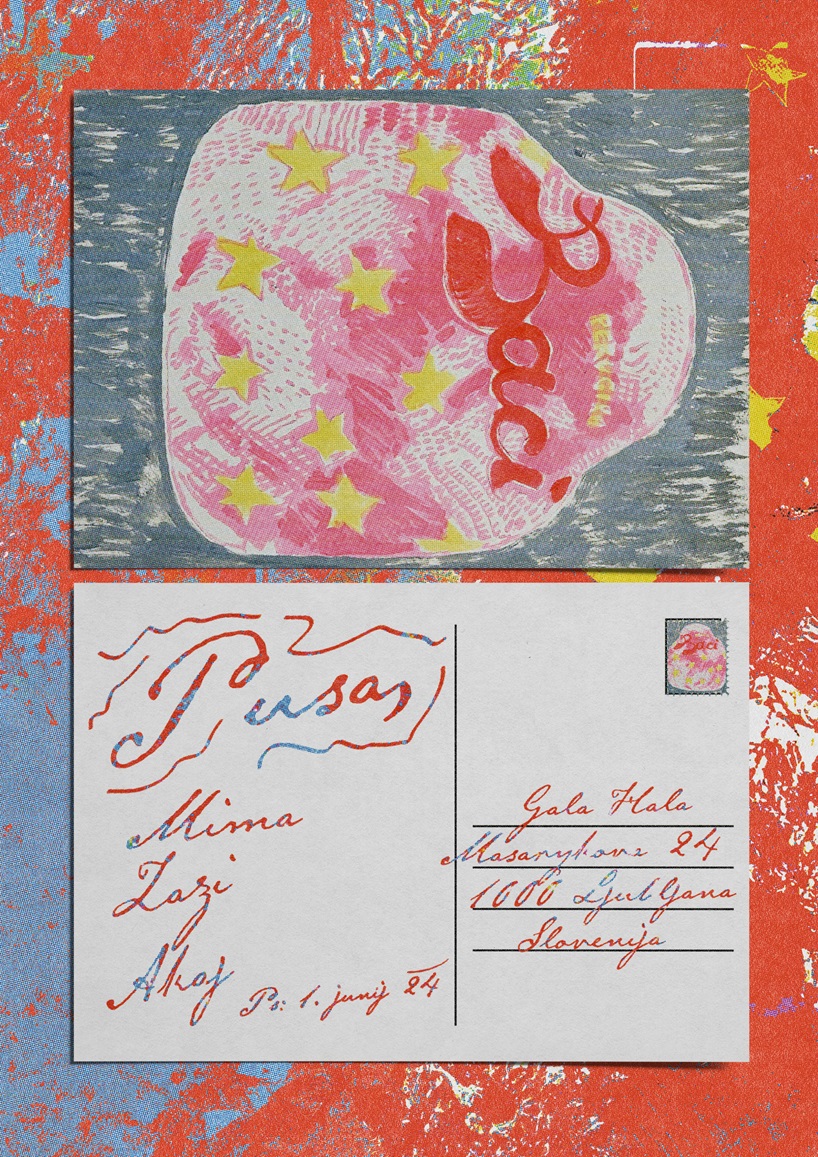 Baci
PERUGINA
Pusa
Baci
Mima
Zazi
Akoj
Ps: 1. junij 24
Gala Hala
Masarykova 24
1000 Ljubljana
Slovenija